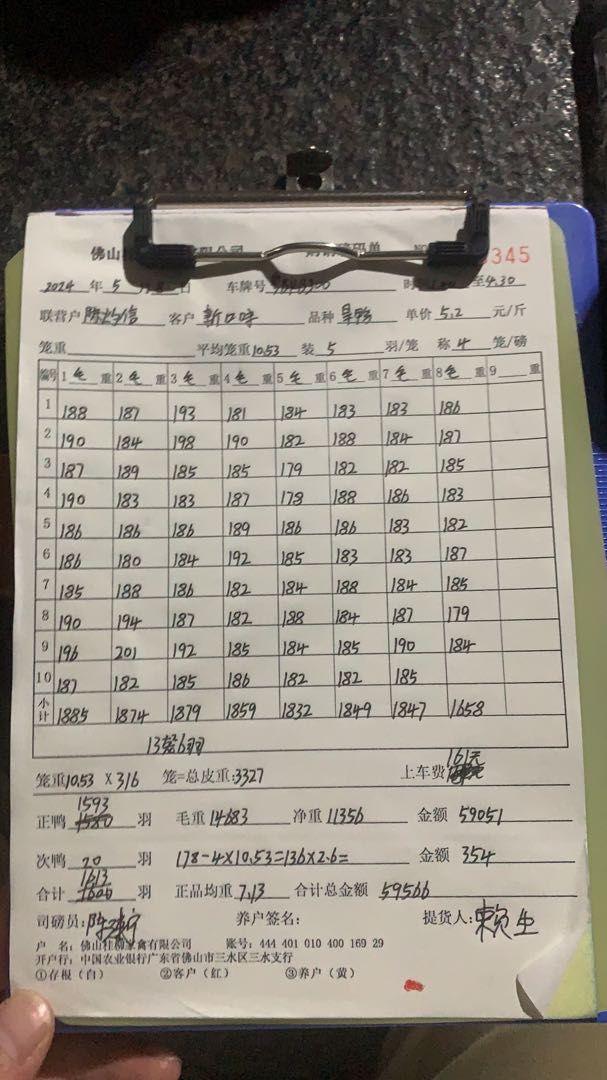 佛山 有限公司 购销磅码单 NO 9345
2024 年 5 月 8 日 车牌号 时 至 4.30
联营户 陈灼信 客户 新口味 品种 旱鸭 单价 5.2 元/斤
笼重 平均笼重 10.53 装 5 羽/笼 称 4 笼/磅
编号 1 毛 重 2 毛 重 3 毛 重 4 毛 重 5 毛 重 6 毛 重 7 毛 重 8 毛 重 9 重
1 188 187 193 181 184 183 183 186
2 190 184 198 190 182 188 184 187
3 187 189 185 185 179 182 182 185
4 190 183 183 187 178 188 186 183
5 186 186 186 189 186 186 183 182
6 186 180 184 192 185 183 183 187
7 185 188 186 182 184 188 184 185
8 190 194 187 182 188 184 187 179
9 196 201 192 185 184 185 190 184
10 187 182 185 186 182 182 185
小计 1885 1874 1879 1859 1832 1849 1847 1658
13 6羽
笼重 10.53 X 316 笼=总皮重:3327 上车费 161元
1593
正鸭 1580 羽 毛重 14683 净重 11356 金额 59051
次鸭 20 羽 178-4X10.53=136X2.6= 金额 354
1613
合计 1600 羽 正品均重 7.13 合计总金额 59566
司磅员: 陈 养户签名: 提货人: 赖生
户 名: 佛山桂柳家禽有限公司 账号: 444 401 010 400 169 29
开户行: 中国农业银行广东省佛山市三水区三水支行
①存根(白) ②客户(红) ③养户(黄)